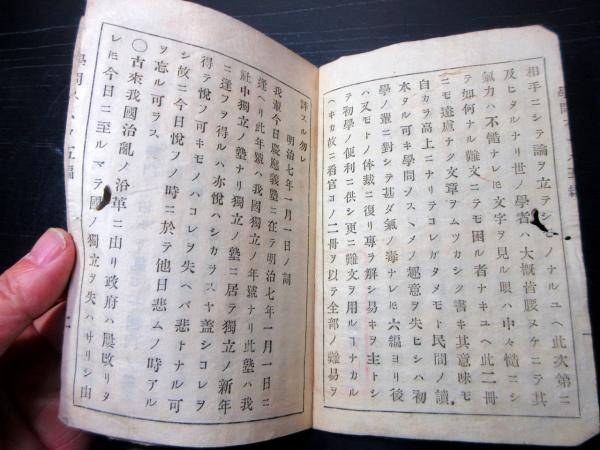 相手ニシテ論ヲ立テシモノナルユヘ此次第ニ
及ヒタルナリ世ノ學者ハ大概皆腰ヌケニテ其
氣力ハ不慥ナレ𪜈文字ヲ見ル眼ハ中々慥ニシ
テ如何ナル難文ニテモ困ル者ナキユヘ此二冊
ニモ遠慮ナク文章ヲムツカシク書キ其意味モ
自カラ高上ニナリテコレガタメモト民間ノ讀
本タル可キ學問ノスヽメノ趣意ヲ失ヒシハ初
學ノ輩ニ對シテ甚ダ氣ノ毒ナレ𪜈六編ヨリ後
ハ又モトノ体裁ニ復リ專ラ解シ易キヲ主トシ
テ初學ノ便利ニ供シ更ニ難文ヲ用ルコナカル
ヘキカ故ニ看官コノ二冊ヲ以テ全部ノ難易ヲ
評スル勿レ
明治七年一月一日ノ詞
我輩今日慶應義塾ニ在テ明治七年一月一日ニ
逢ヘリ此年號ハ我國獨立ノ年號ナリ此塾ハ我
社中獨立ノ塾ナリ獨立ノ塾ニ居テ獨立ノ新年
ニ逢フヲ得ルハ亦悅ハシカラスヤ蓋シコレヲ
得テ悅フ可キモノハコレヲ失ヘバ悲トナル可
シ故ニ今日悅フノ時ニ於テ他日悲ムノ時アル
ヲ忘ル可ラス
〇古來我國治亂ノ沿革ニ由リ政府ハ屢改リタ
レ𪜈今日ニ至ルマテ國ノ獨立ヲ失ハサリシ由
五編